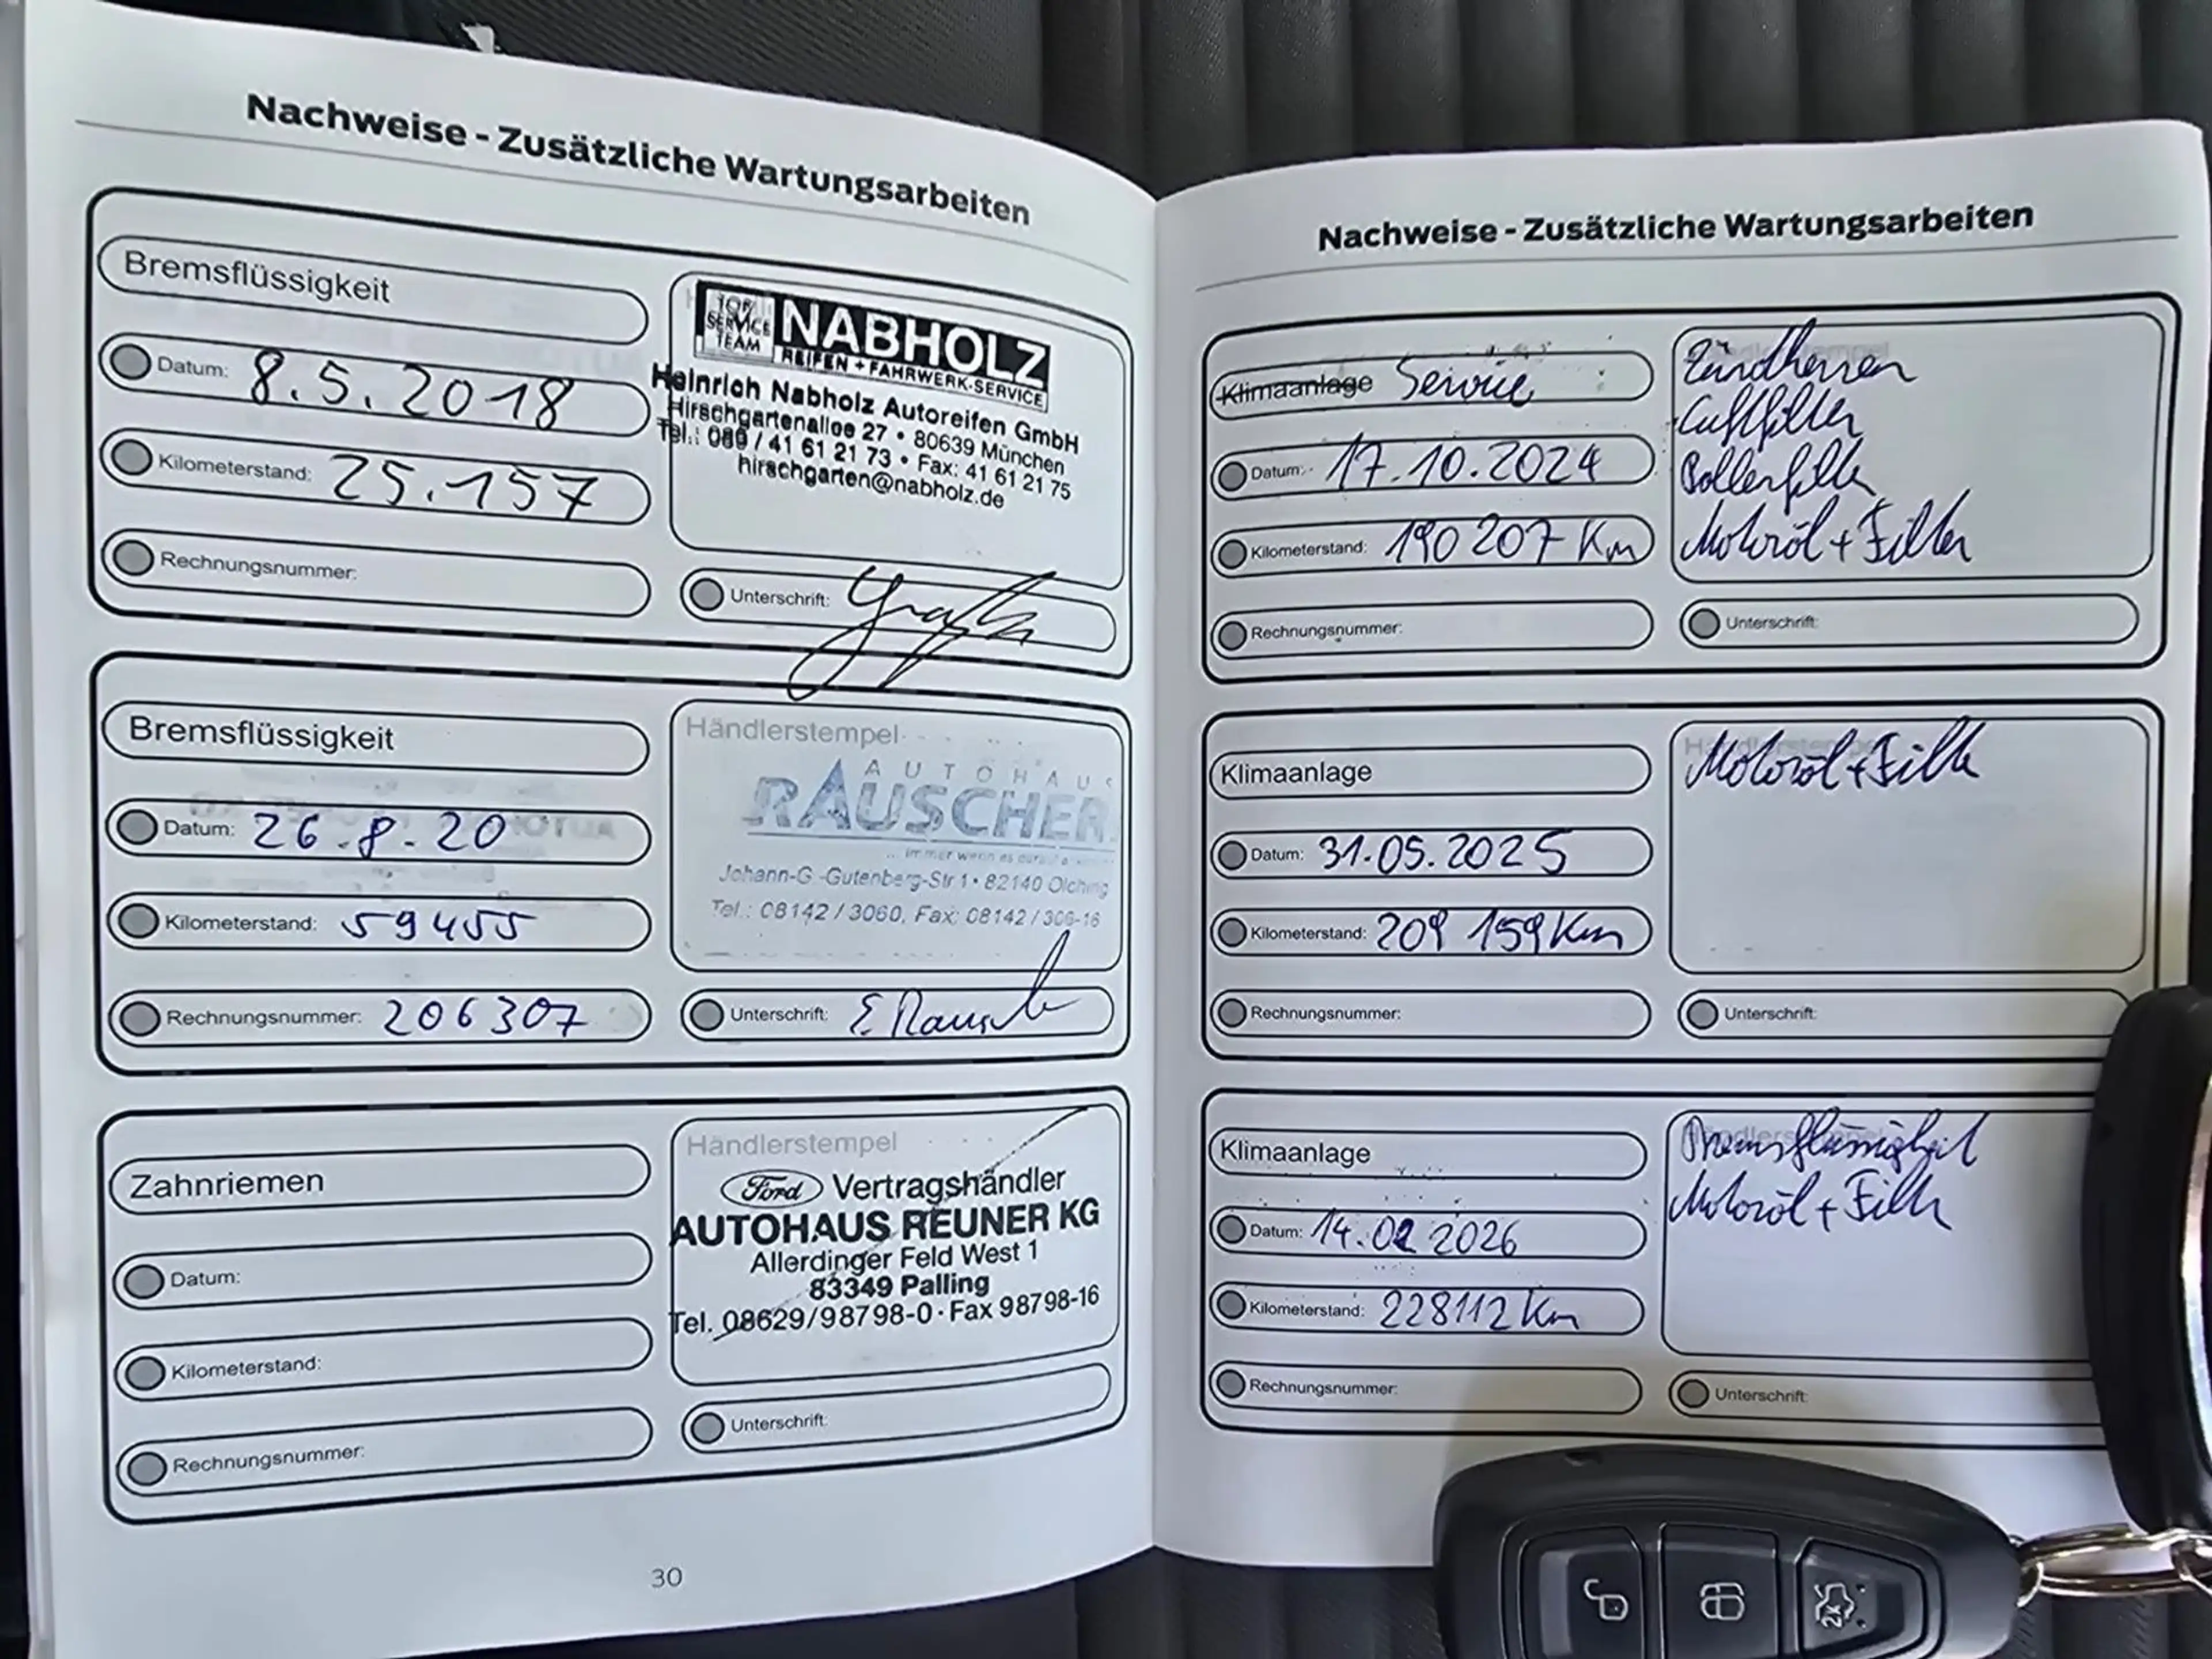 Nachweise - Zusätzliche Wartungsarbeiten
Bremsflüssigkeit
Datum: 8.5.2018
Kilometerstand: 25.157
Rechnungsnummer:
TOP SERVICE TEAM
NABHOLZ
REIFEN + FAHRWERK-SERVICE
Heinrich Nabholz Autoreifen GmbH
Hirschgartenallee 27 • 80639 München
Tel.: 089 / 41 61 21 73 • Fax: 41 61 21 75
hirschgarten@nabholz.de
Unterschrift:
Bremsflüssigkeit
Datum: 26.8.20
Kilometerstand: 59455
Rechnungsnummer: 206307
Händlerstempel
AUTOHAUS
RAUSCHER
... immer wenn es
Johann-G.-Gutenberg-Str.1 • 82140 Olching
Tel.: 08142 / 3060, Fax: 08142 / 306-16
Unterschrift: E Rausch
Zahnriemen
Datum:
Kilometerstand:
Rechnungsnummer:
Händlerstempel
Ford Vertragshändler
AUTOHAUS REUNER KG
Allerdinger Feld West 1
83349 Palling
Tel. 08629/98798-0 · Fax 98798-16
Unterschrift:
30
Nachweise - Zusätzliche Wartungsarbeiten
Klimaanlage Service
Datum: 17.10.2024
Kilometerstand: 190 207 Km
Rechnungsnummer:
Zündkerzen
Luftfilter
Pollenfilter
Motoröl + Filter
Unterschrift:
Klimaanlage
Datum: 31.05.2025
Kilometerstand: 209 159 Km
Rechnungsnummer:
Händlerstempel
Motoröl + Filter
Unterschrift:
Klimaanlage
Datum: 14.02 2026
Kilometerstand: 228112 Km
Rechnungsnummer:
Bremsflüssigkeit
Motoröl + Filter
Unterschrift:
2x